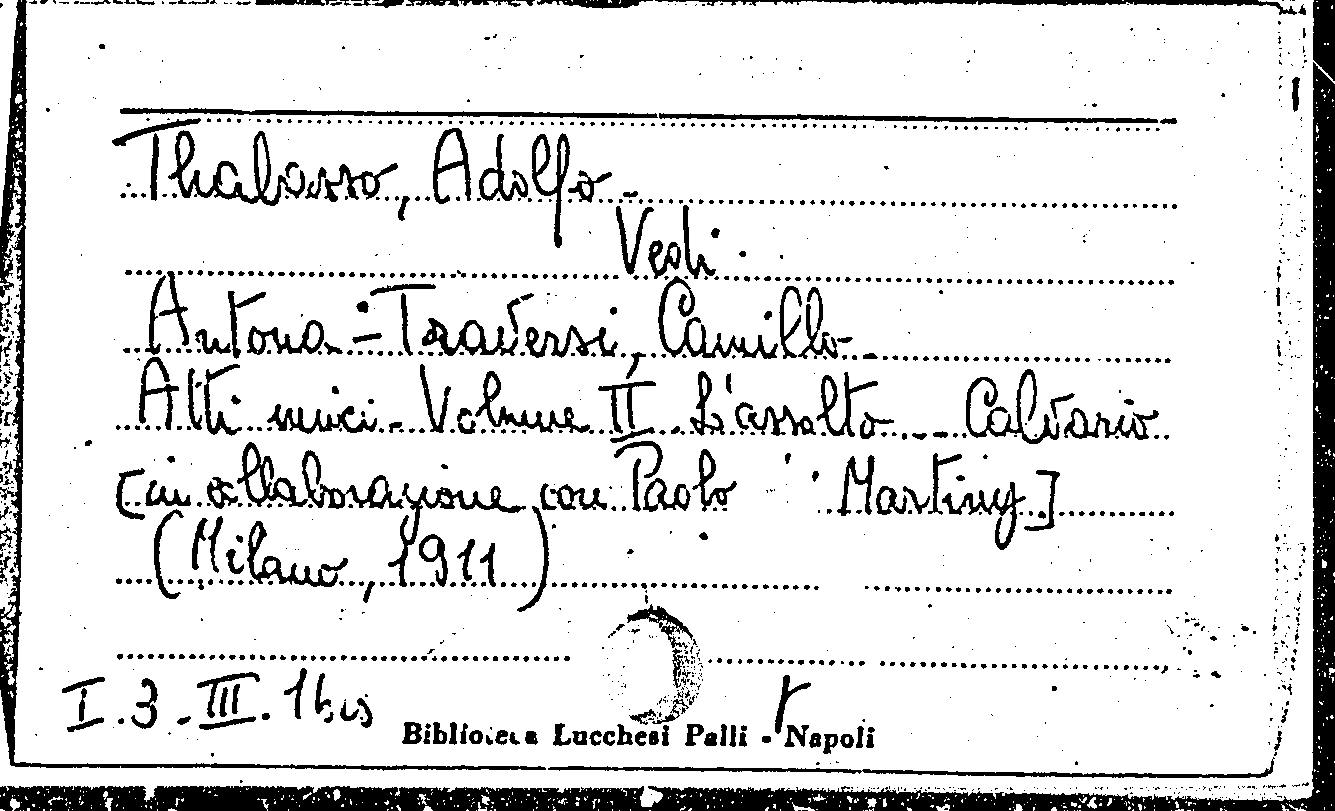 Thalasso, Adolfo -
Vedi:
Antona-Traversi, Camillo -
Atti unici - Volume II - L'assalto - Calvario
[in collaborazione con Paolo Martiny]
(Milano, 1911)
I.3.-III.1bis
Biblioteca Lucchesi Palli - Napoli